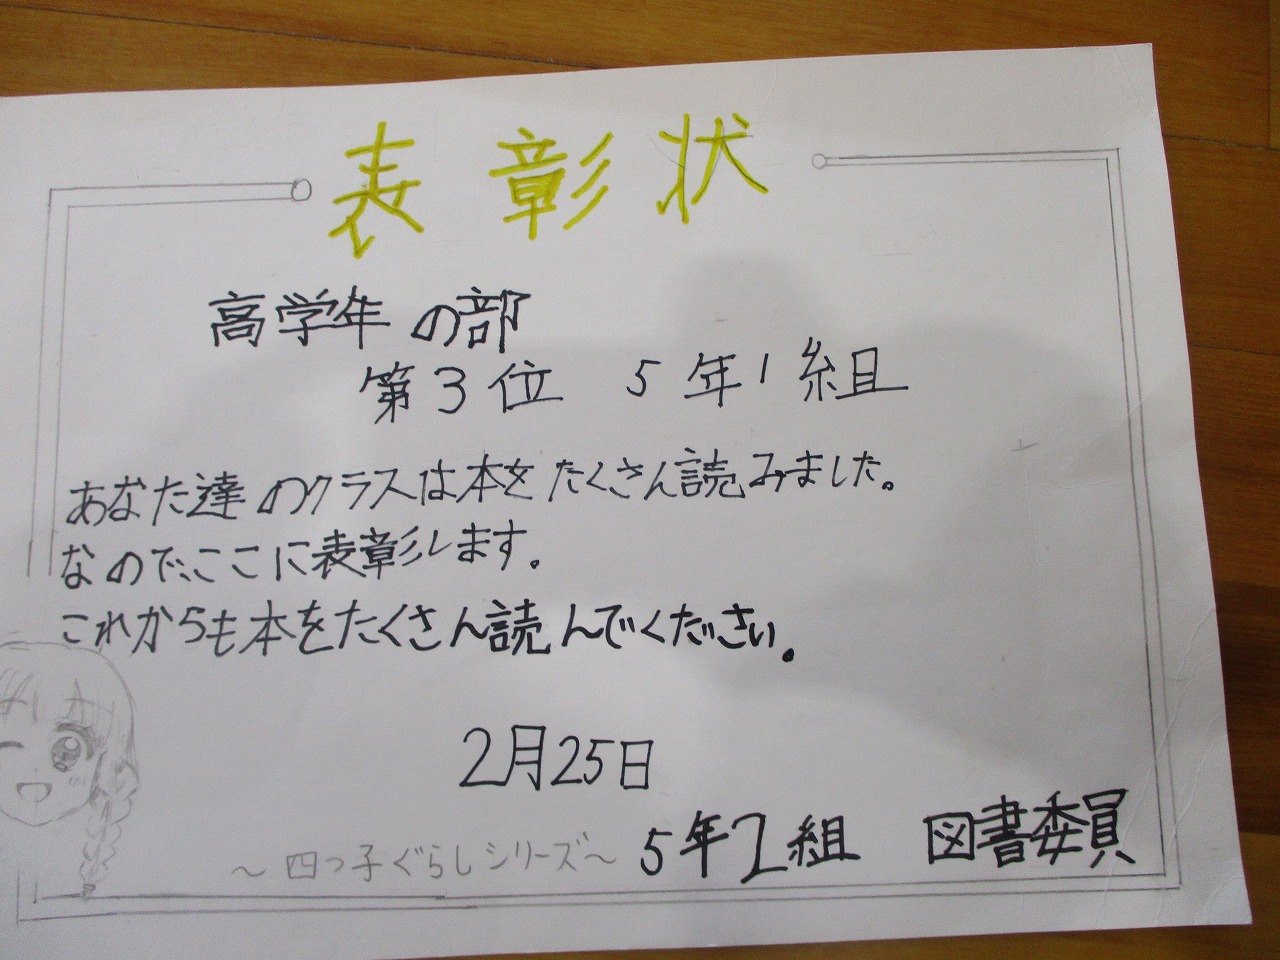 表彰状
高学年の部
第3位 5年1組
あなた達のクラスは本をたくさん読みました。
なので、ここに表彰します。
これからも本をたくさん読んでください。
2月25日
～四つ子ぐらしシリーズ～ 5年2組 図書委員